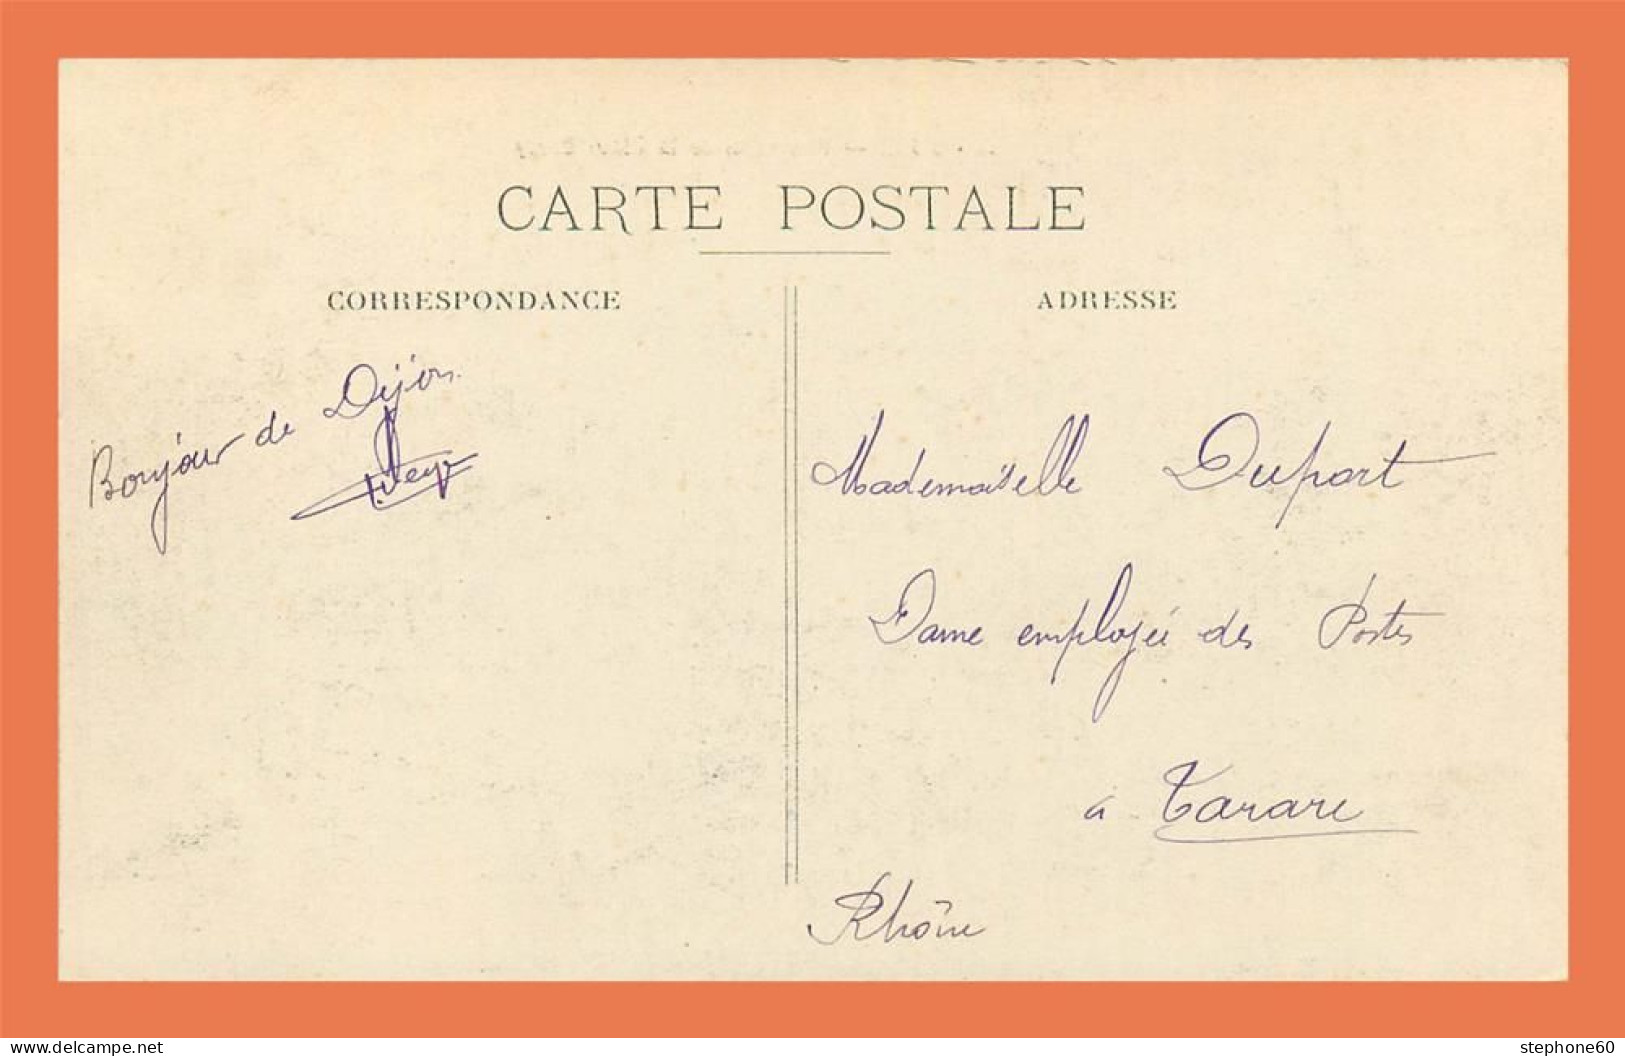 CARTE POSTALE
CORRESPONDANCE
Bonjour de Dijon.
ADRESSE
Mademoiselle Duport
Dame employée des Postes
à Tarare
Rhône
www.delcampe.net
stephone60